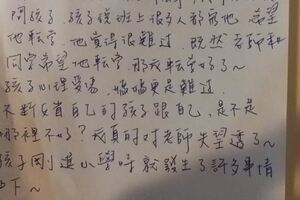 阿孩子,孩子說班上很多人都罵他,希望
他轉學,他覺得很難過,既然老師和
同學希望他轉學,那我轉學好了~
孩子心理受傷,媽媽更是難過,
不斷反省自己的孩子跟自己,是不是
哪裡不好?我真的對老師失望透了~
孩子剛進小學時就發生了許多事情
如下~